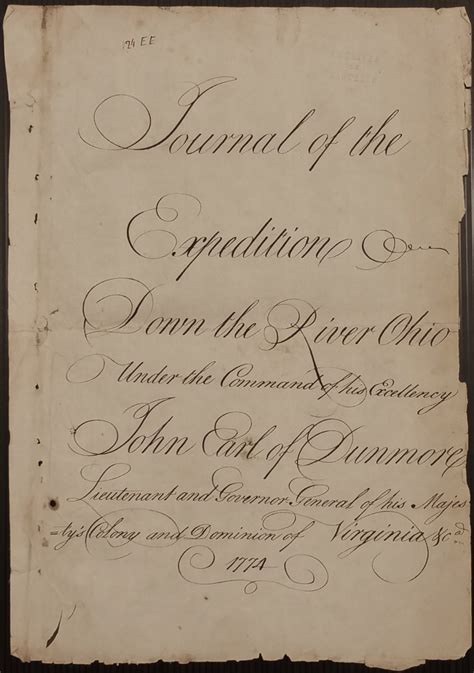 24 EE
Journal of the
Expedition
Down the River Ohio
Under the Command of his Excellency
John Earl of Dunmore
Lieutenant and Governor General of his Majes
=ty's Colony and Dominion of Virginia &ca
1774